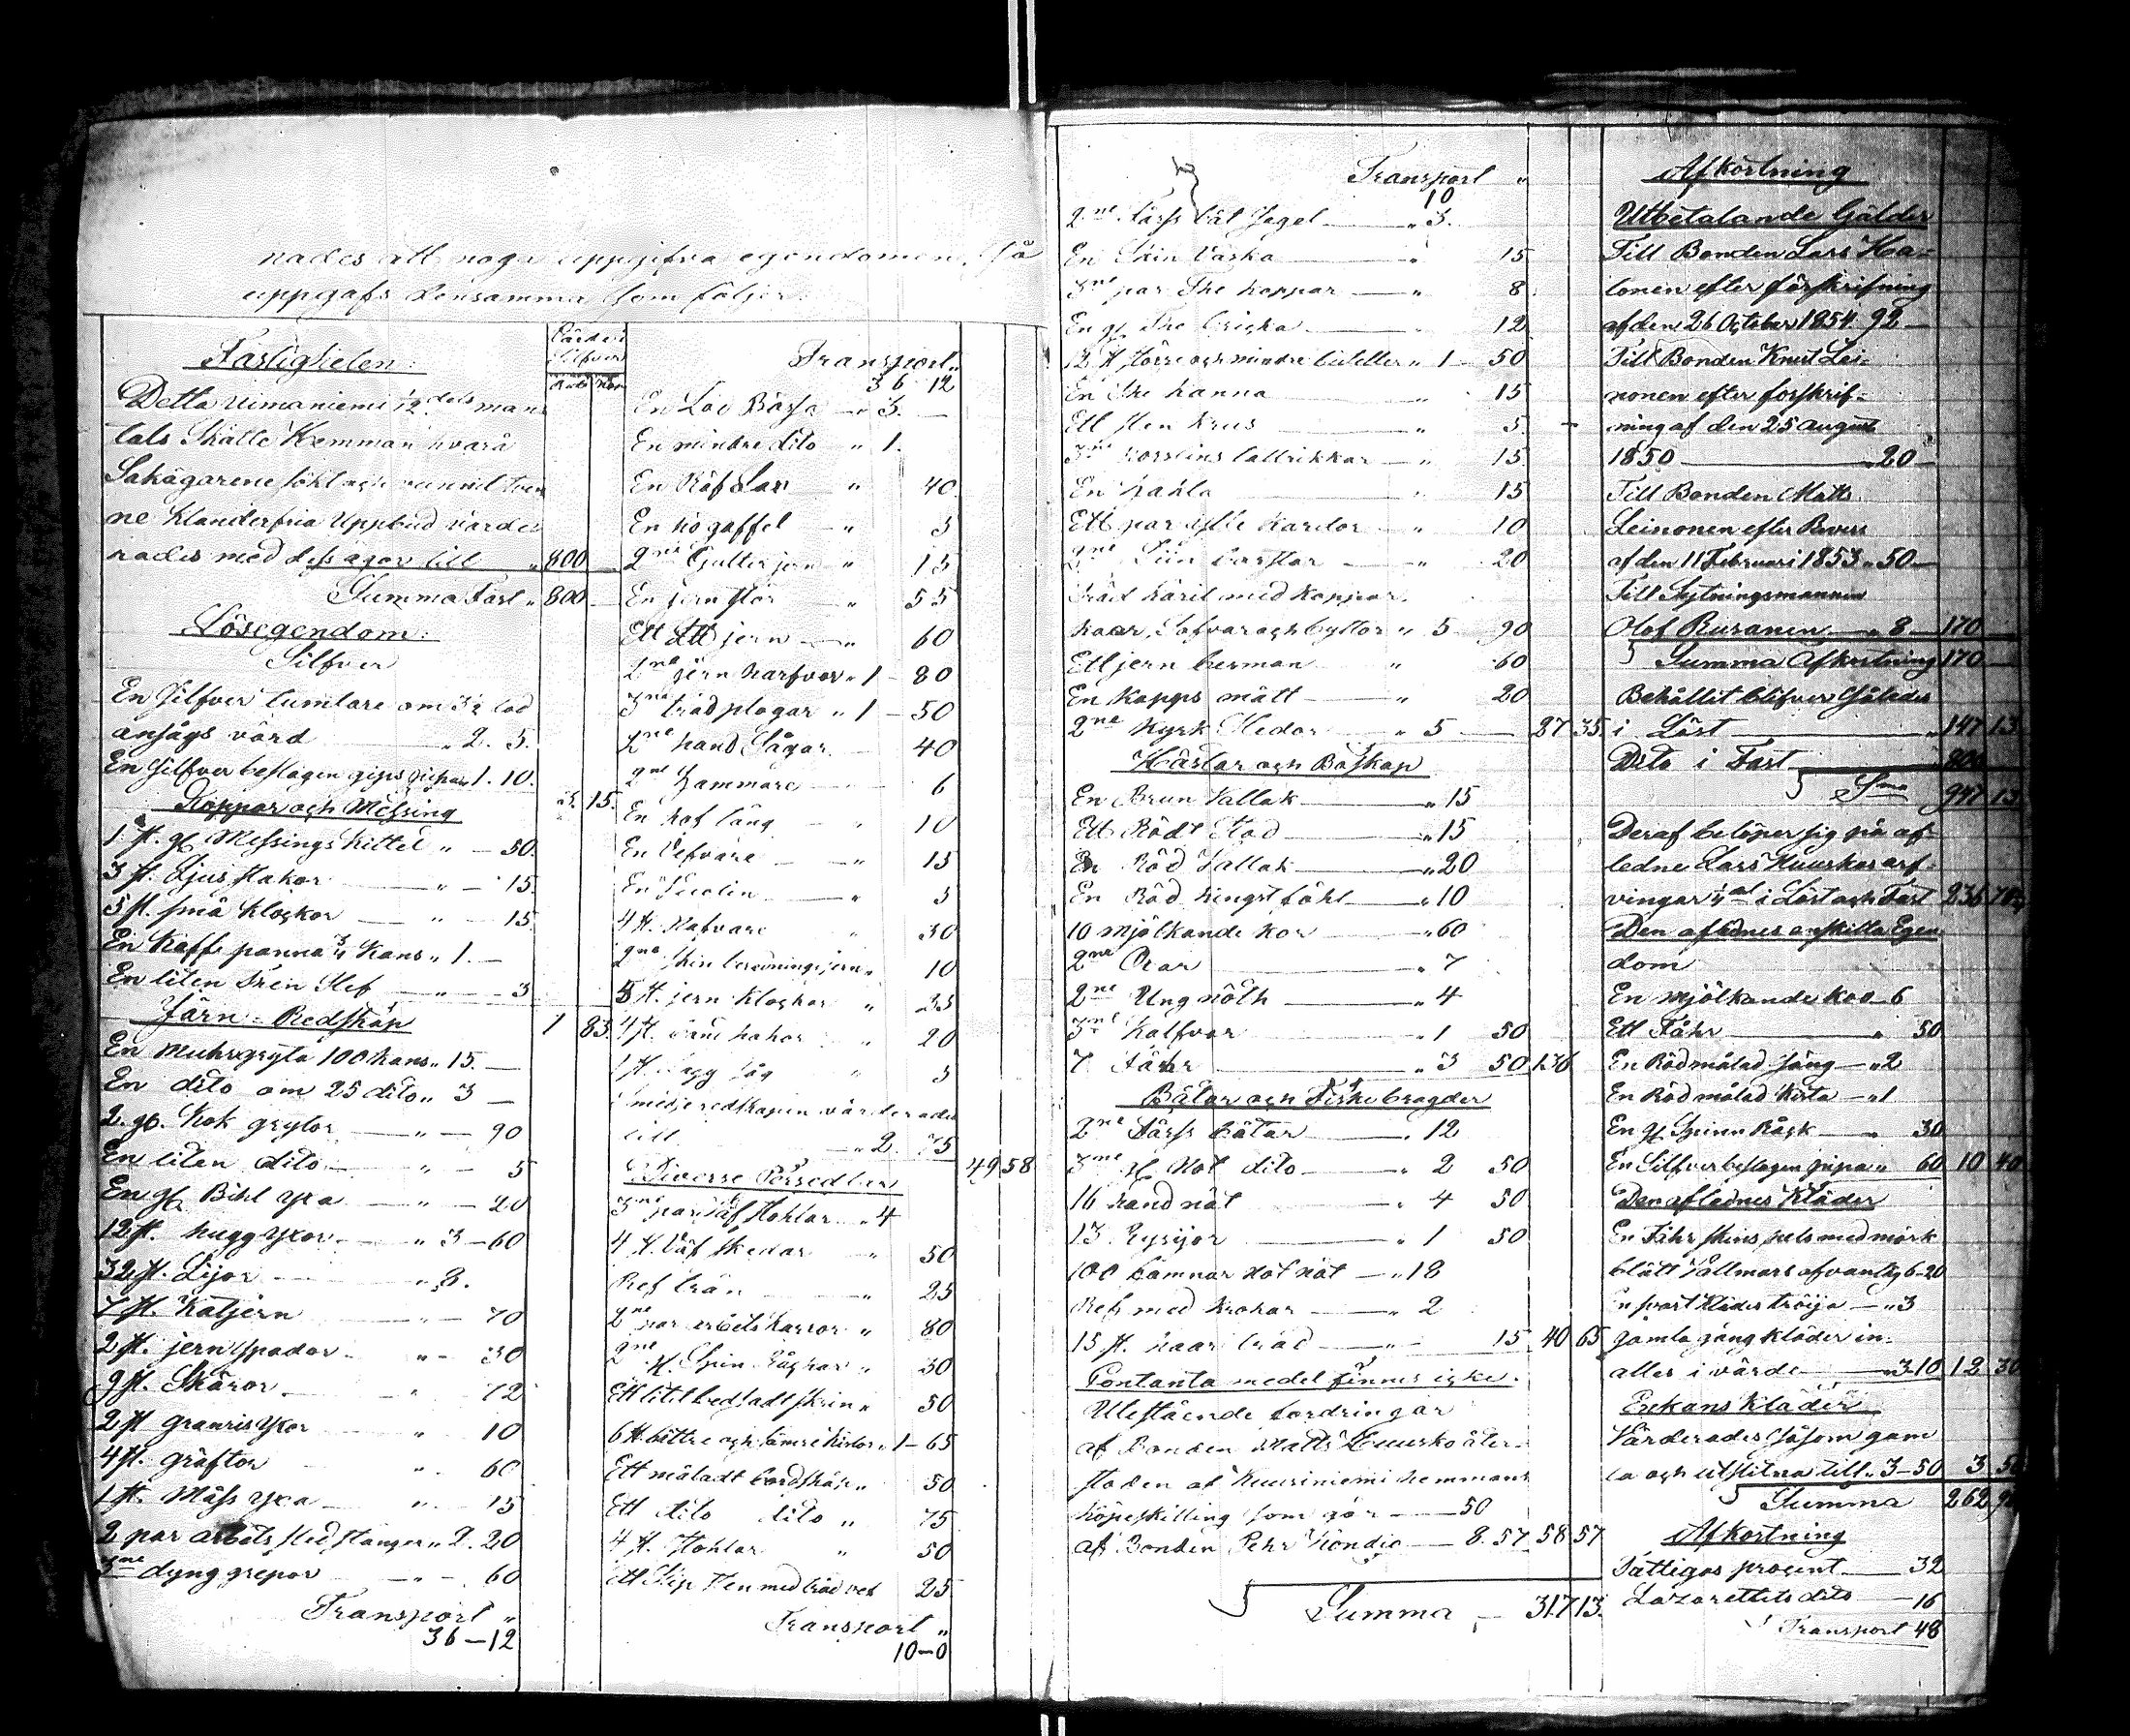 nades att noga uppgifva egendomen, så
uppgafs densamma som följer
Värde i
Silfver
Rub Kop
Fastigheten:
Detta Uimaniemi 1/2 dels man
tals Skatte Hemman hvarå
Sakägarene sökt och vunnit tven
ne klanderfria Uppbud värde
rades med dess ägor till " 800
Summa Fast " 800
Lösegendom:
Silfver
En Silfver tumlare om 3½ lod
ansågs värd " 2. 5.
En Silfverbeslagen gips pipa " 1. 10.
3. 15.
Koppar och Messing
1 st. gl Messings kittel " — 50.
3 st. Ljus stakar " — 15.
5 st. små klockor — " — 15.
En Kaffe panna ¾ Kans " 1. —
En liten Slef — " — 3
1 83.
Järn-Redskap
En Muhrgryta 100 kans " 15. —
En dito om 25 dito " 3 —
2. gl. Kok grytor — " — 90
En liten dito — " — 5
En gl Bihl yxa — " — 20
12 st. hugg yxor — " 3 — 60
32 st. Lijor — " 8.
7 st. Katjern — " — 70
2 st. jern spador — " — 30
9 st. Skäror — " 72
2 st granris yxor " 10
4 st. gräftor " 60
1 st. Måss yxa — " 15
2 par arbets sled stänger " 2. 20
3ne dyng grepar — " — 60
Transport "
36 — 12
Transport "
36 12
En Lod Bössa — " 3. —
En mindre dito " 1.
En Räf Sax " 40.
En högaffel — " 5
2ne " 15
En jern stör " 55
Ett jern — " 60
2ne jern harfvar " 1 — 80
3ne trädplogar " 1 — 50
2ne hand Sågar — 40
2ne Hammare — 6
En hof tång — " 10
En — " 15
En — " 5
4 st. Nafvare " 30
2ne skin beredningsjern " 10
5 st. jern klockor " 25
4 st. hakor " 20
1 st. såg " 5
Smidjeredskapen värderades
till " 2. 75
49 58
Diverse Persedlar
3ne par Väf stohlar " 4
4 st. Väf skedar " 50
Ref trän " 25
2ne par arbets kärror " 80
2ne st. Spin Råckar " 30
Ett litet besladt skrin " 50
6 st. bättre och sämre kistor " 1 — 65
Ett måladt bordskåp " 50
Ett dito dito " 75
4 st. Stohlar " 50
ett Slip sten med träd vef 25
Transport "
10 — 0
Transport "
10
2ne Färss båt Segel — " 3.
En Skin Väska " 15
3ne par The koppar — " 8
En gl The bricka — 12
12 st. större och mindre buteller " 1 — 50
En The kanna " 15
Ett sten krus — " 5.
3ne porslins tallrikkar — " 15
En kakla " 15
Ett par ylle kardor — " 10
2ne Liin borstar — " 20
Träd käril med koppar
kaar, Såfvar och byttor " 5 — 90
Ett jern besman " 60
En Kapps mått — " 20
2ne kyrk Sledar — " 5 — 87 35.
Hästar och Boskap
En Brun Vallak — " 15
Ett Rödt Stod — " 15
En Röd Vallak — " 20
En Röd hingst fåhl — " 10
10 mjölkande kor — " 60
2ne Oxar — " 7
2ne Ung nöth — " 4
3ne Kalfvar — " 1 50
7 Fåhr — " 3 50 136
Båtar och Fiskebragder
2ne Färss båtar — " 12
3ne gl Not dito — " 2 50
16 hand nät " 4 50
13 Rysijor — " 1 50
100 famnar Not nät — " 18
Ref med krokar — " 2
15 st. haar träd — " 15 40 65
Contanta medel finnes icke.
Utestående fordringar
af Bonden Matts Kuusko åter-
stoden af Kuusiniemi hemmans
köpeskilling som gör — 50
af Bonden Pehr Köndiö — 8. 57 58 57
Summa — 317 13.
Afkortning
Utbetalande Gälder
Till Bonden Lars Ha-
tonen efter förskrifning
af den 26 October 1854. 92 —
Till Bonden Knut Lei-
nonen efter förskrif-
ning af den 25 augusti
1850 — " 20 —
Till Bonden Matts
Leinonen efter Revers
af den 11 Februari 1853 " 50 —
Till Sytningsmannen
Olof Ruranen — " 8 — 170
Summa Afkortning 170
Behållit blifver således
i Löst — " 147 13
Dito i Fast — 800
Sma 947 13
Deraf belöper sig på af-
ledne Lars Kuuskos arf-
vingar ¼ del i Löst och Fast 236 78
Den aflednes enskilta Egen
dom
En mjölkande koo 6
Ett Fåhr — " 50
En Rödmålad Säng — " 2
En Röd målad kista — " 1
En gl Spinn Råck — " 30
En Silfverbeslagen pipa " 60 10 40
Den aflednes Kläder
En Fåhrskins pels med mörk
blått Vallmars ofvantyg 6-20
En svart klädes tröija — " 3
gamla gångkläder in-
alles i värde — " 3.10 12 30
Enkans Kläder
Värderades såsom gam
la och utslitna till " 3-50 3 50
Summa 262 98
Afkortning
Fattigas procent — 32
Lazarettets dito — 16
Transport 48